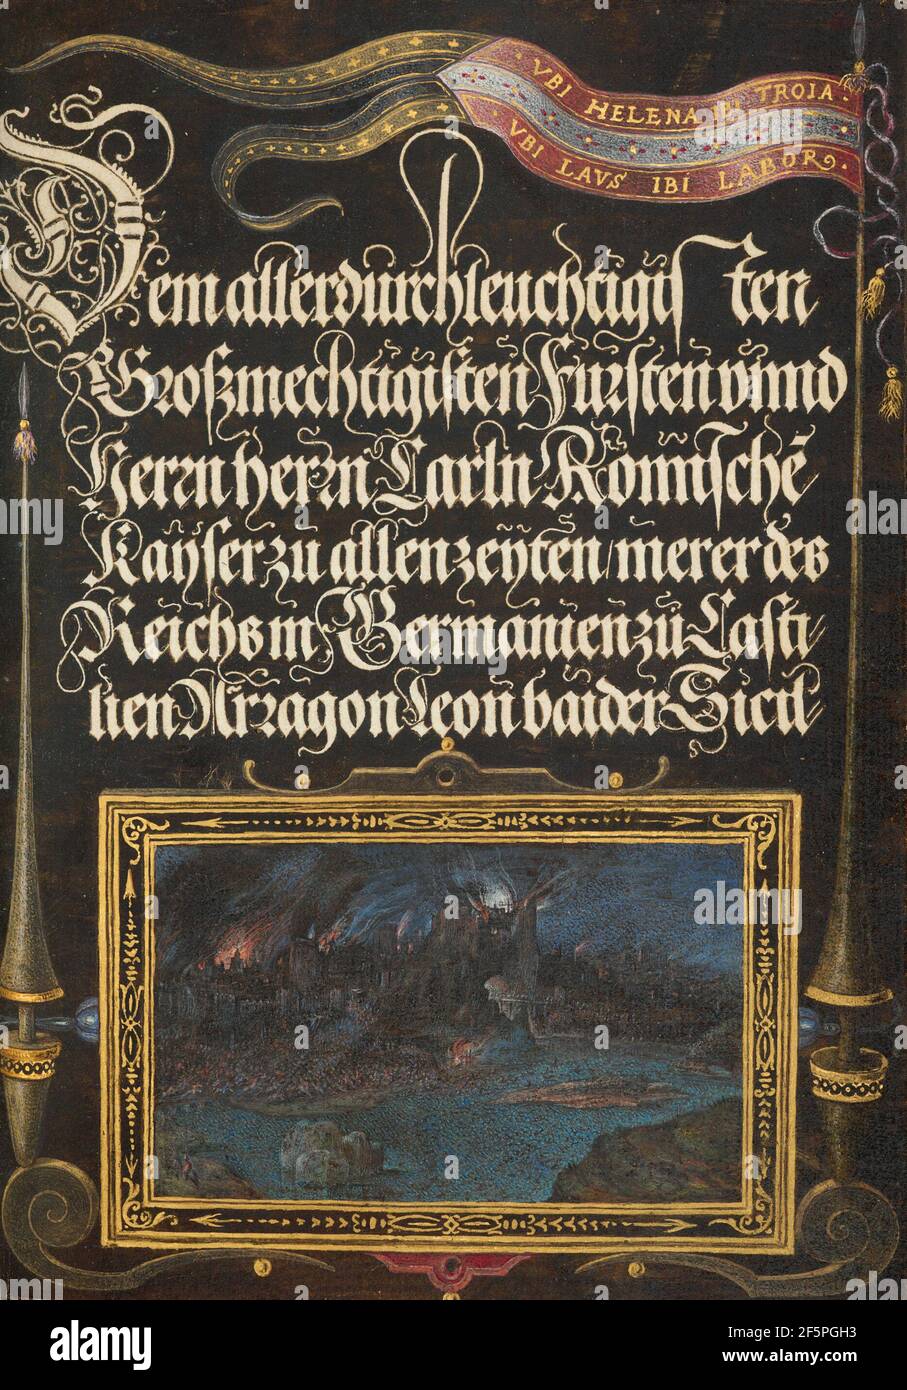 VBI HELENA IBI TROIA ·
· VBI LAVS IBI LABOR ·
Dem allerdurchleuchtigisten
Großmechtigisten Fursten vnnd
Herrn herrn Carln Römischē
Kayser zu allen zeyten / merer des
Reichs in Germanien zů Casti/
lien Arragon Leon baider Sicil/
alamy
www.alamy.com
Image ID: 2F5PGH3